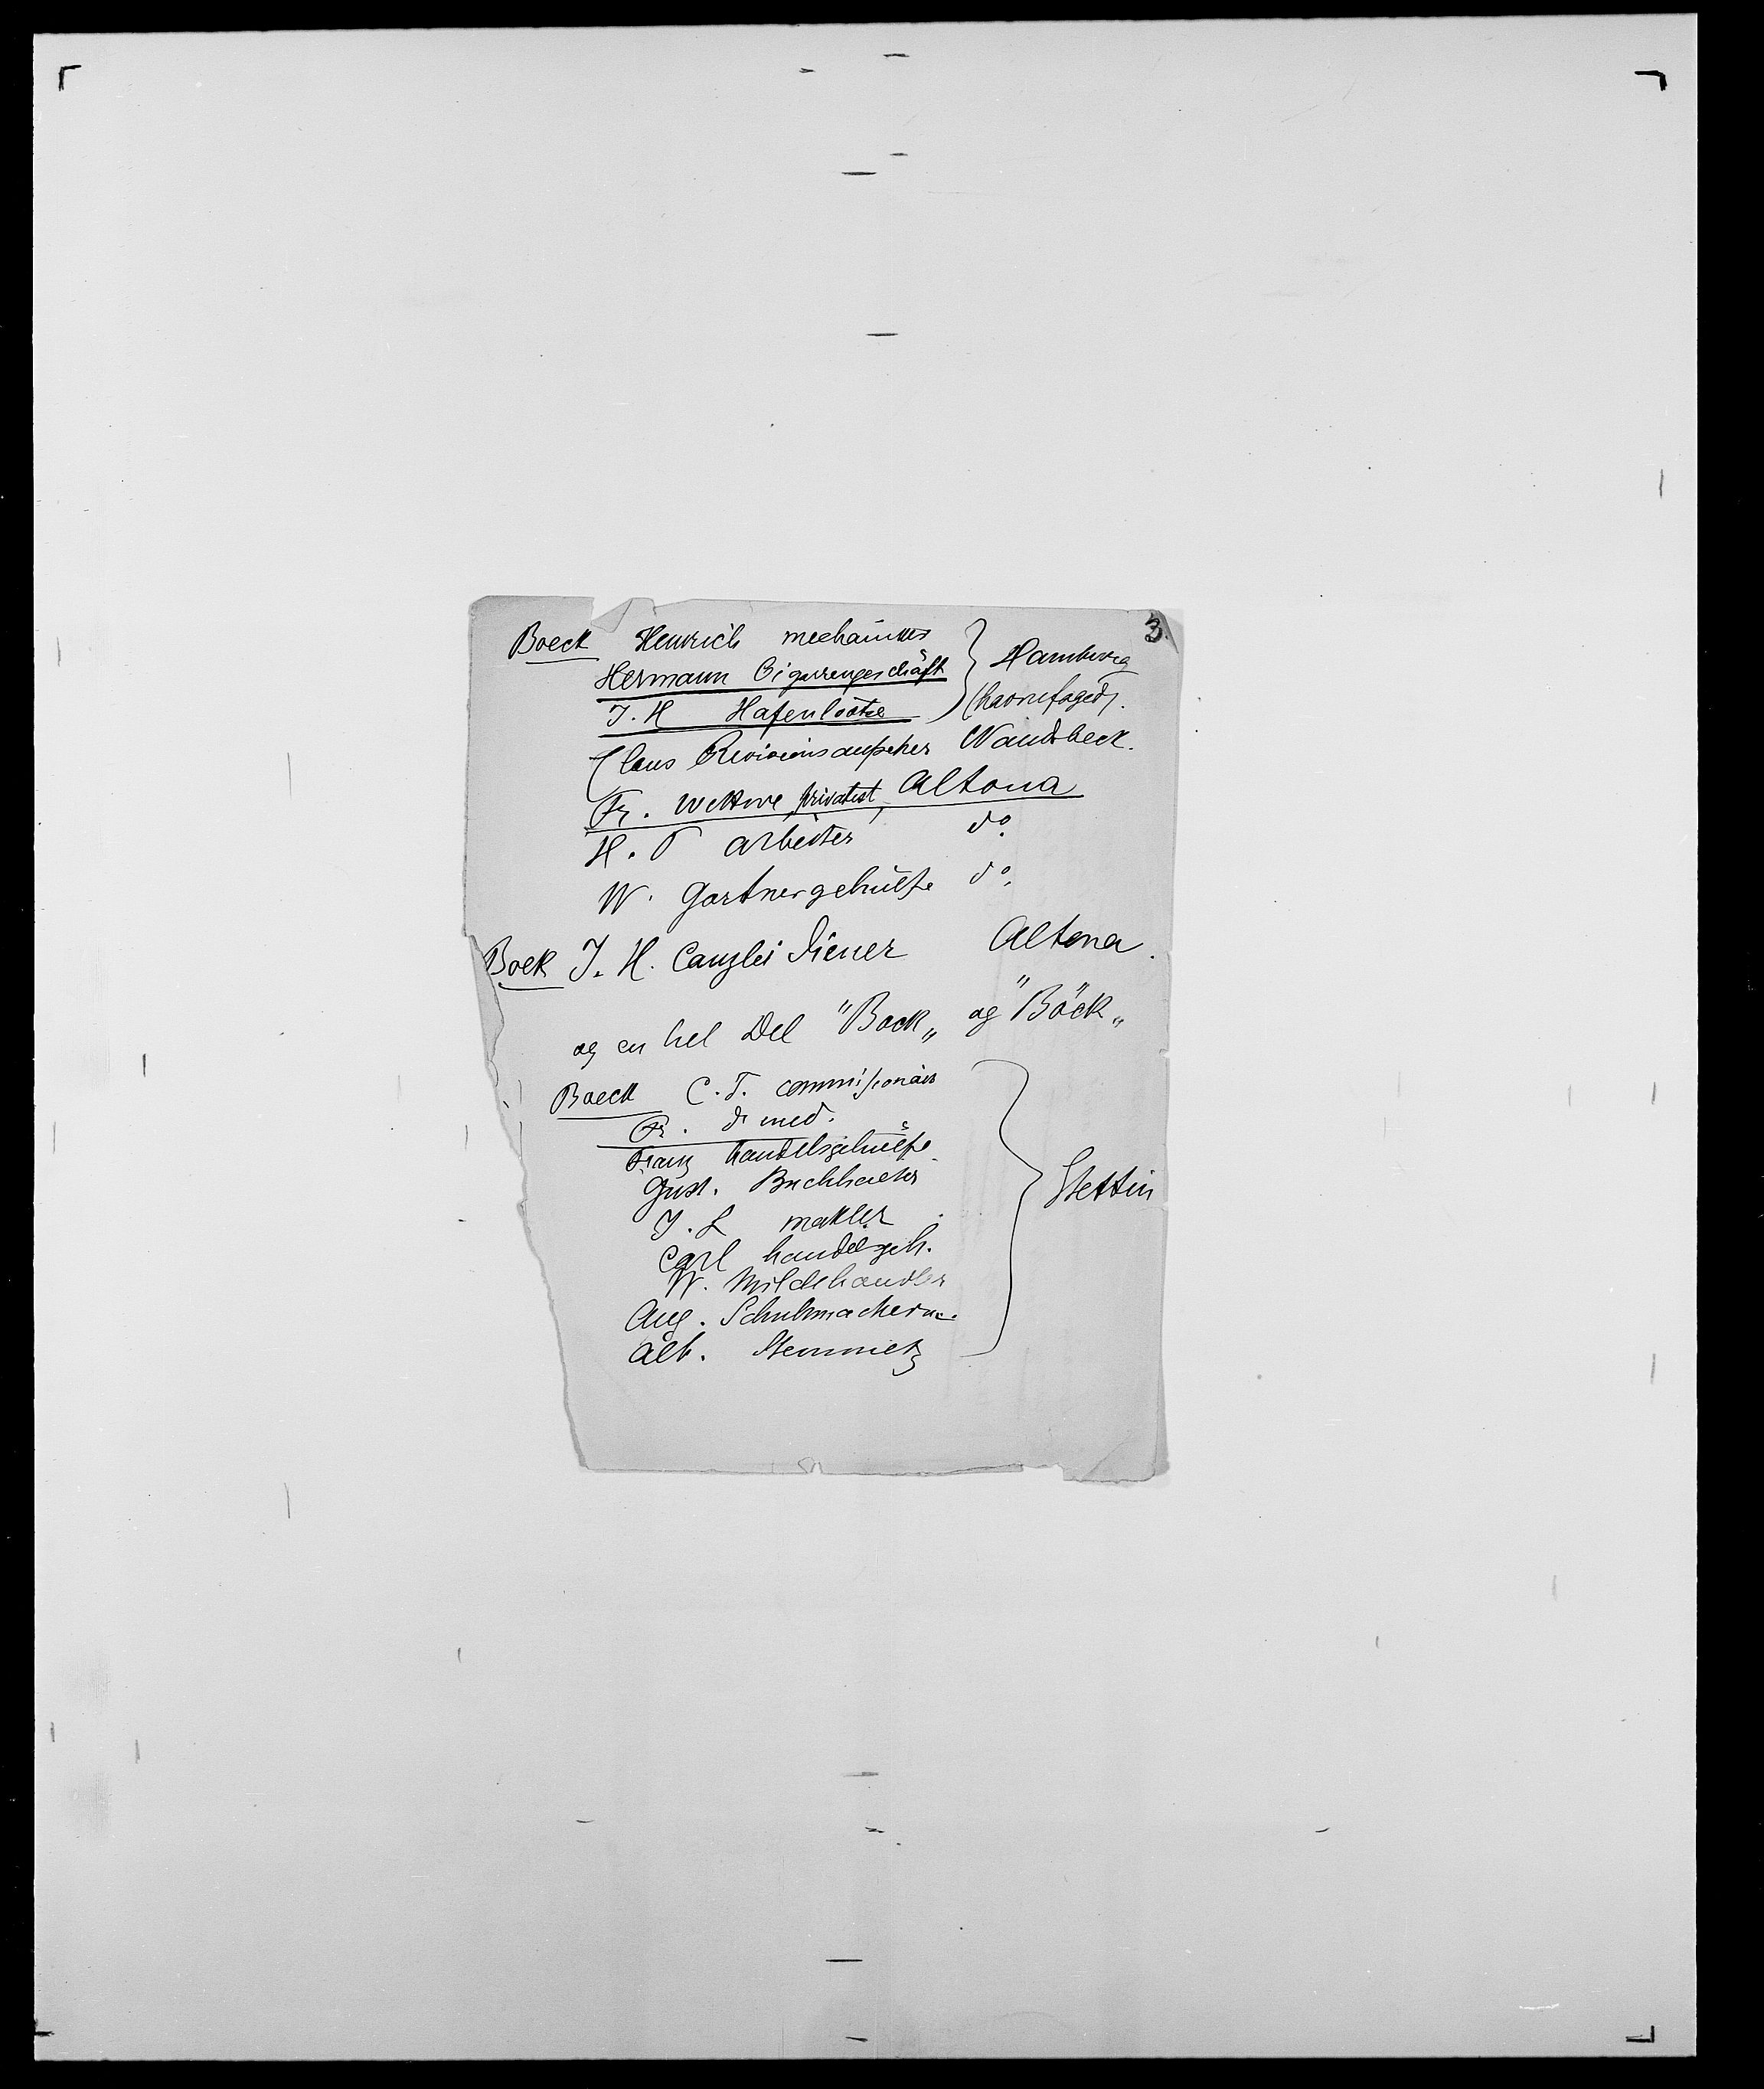 3.
Boeck Heinrich mechanikus
Hermann Cigarrengeschäft } Hamburg
J. H Hafenlootse
Claus Revisionsaufseher Wandsbeck.
Fr. Wittwe privatist, Altona
H. P arbeiter do.
W. Gartnergehülfe do.
Boek J. H. Canzlei diener Altona.
og en hel Del "Bock„ og "Böck„
Boeck C. T. commissionair
Fr. dr med.
Franz handelsgehülfe
Gust. Buchhalter
J. L makler } Stettin
Carl handelsgeh.
W. Milchhandler
Aug. Schuhmacherm.
Alb. Steinmetz